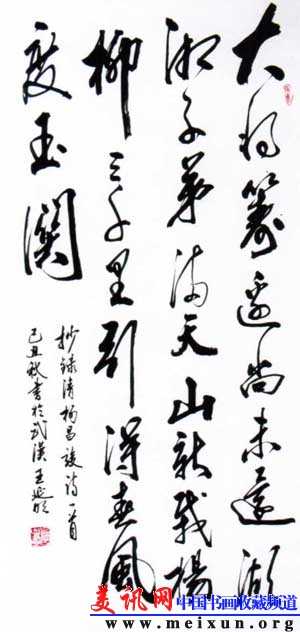 大将籌邊尚未還湖
湘子弟滿天山新栽楊
柳三千里引得春風
度玉關
抄録清楊昌浚詩一首
己丑秋書於武漢 王延
美讯网 中国书画收藏频道
www.meixun.org